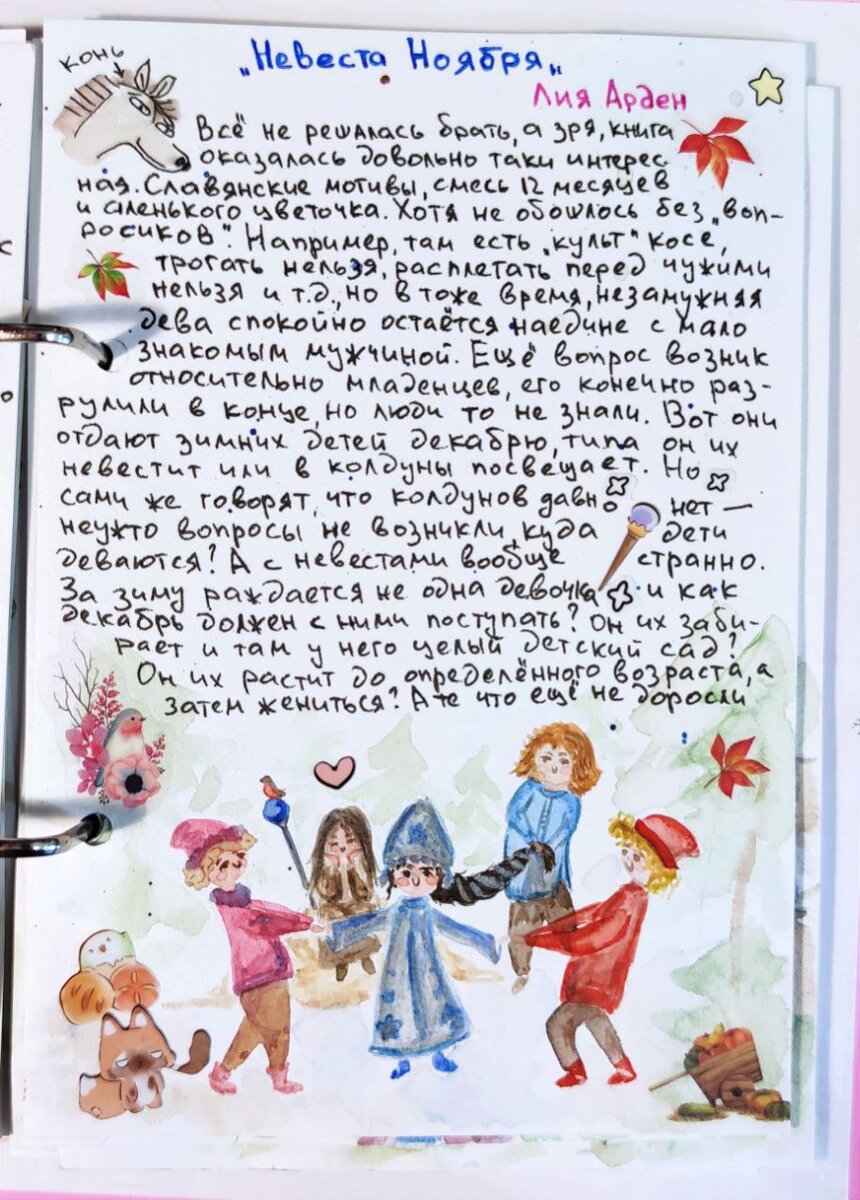 конь
„Невеста Ноября„
Лия Арден
Всё не решалась брать, а зря, книга
оказалась довольно таки интерес
ная. Славянские мотивы, смесь 12 месяцев
и аленького цветочка. Хотя не обошлось без „воп-
росиков". Например, там есть „культ" косе,
трогать нельзя, расплетать перед чужими
нельзя и т.д., но в тоже время, незамужняя
дева спокойно остаётся наедине с мало
знакомым мужчиной. Ещё вопрос возник
относительно младенцев, его конечно раз-
рулили в конце, но люди то не знали. Вот они
отдают зимних детей декабрю, типа он их
невестит или в колдуны посвещает. Но
сами же говорят, что колдунов давно нет —
неужто вопросы не возникли, куда дети
деваются? А с невестами вообще странно.
За зиму раждается не одна девочка и как
декабрь должен с ними поступать? Он их заби-
рает и там у него целый детский сад?
Он их растит до определённого возраста, а
затем жениться? А те что ещё не доросли